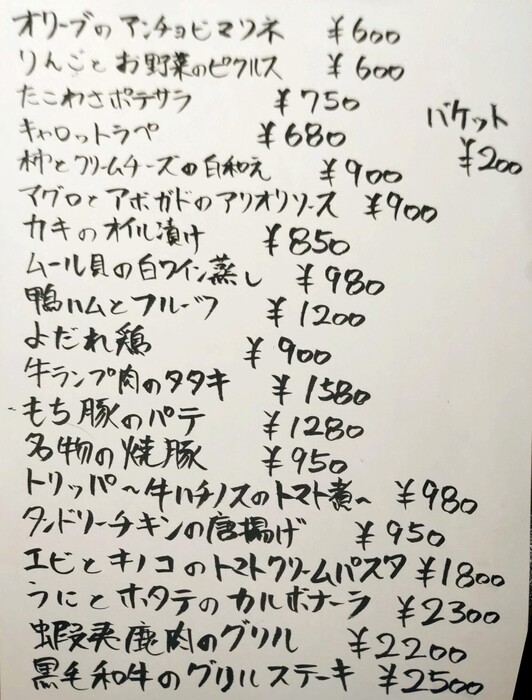 オリーブのアンチョビマリネ ¥600
りんごとお野菜のピクルス ¥600
たこわさポテサラ ¥750
バケット
¥200
キャロットラペ ¥680
柿とクリームチーズの白和え ¥900
マグロとアボガドのアリオリソース ¥900
カキのオイル漬け ¥850
ムール貝の白ワイン蒸し ¥980
鴨ハムとフルーツ ¥1200
よだれ鶏 ¥900
牛ランプ肉のタタキ ¥1580
もち豚のパテ ¥1280
名物の焼豚 ¥950
トリッパ〜牛ハチノスのトマト煮〜 ¥980
タンドリーチキンの唐揚げ ¥950
エビとキノコのトマトクリームパスタ ¥1800
うにとホタテのカルボナーラ ¥2300
蝦夷鹿肉のグリル ¥2200
黒毛和牛のグリルステーキ ¥2500